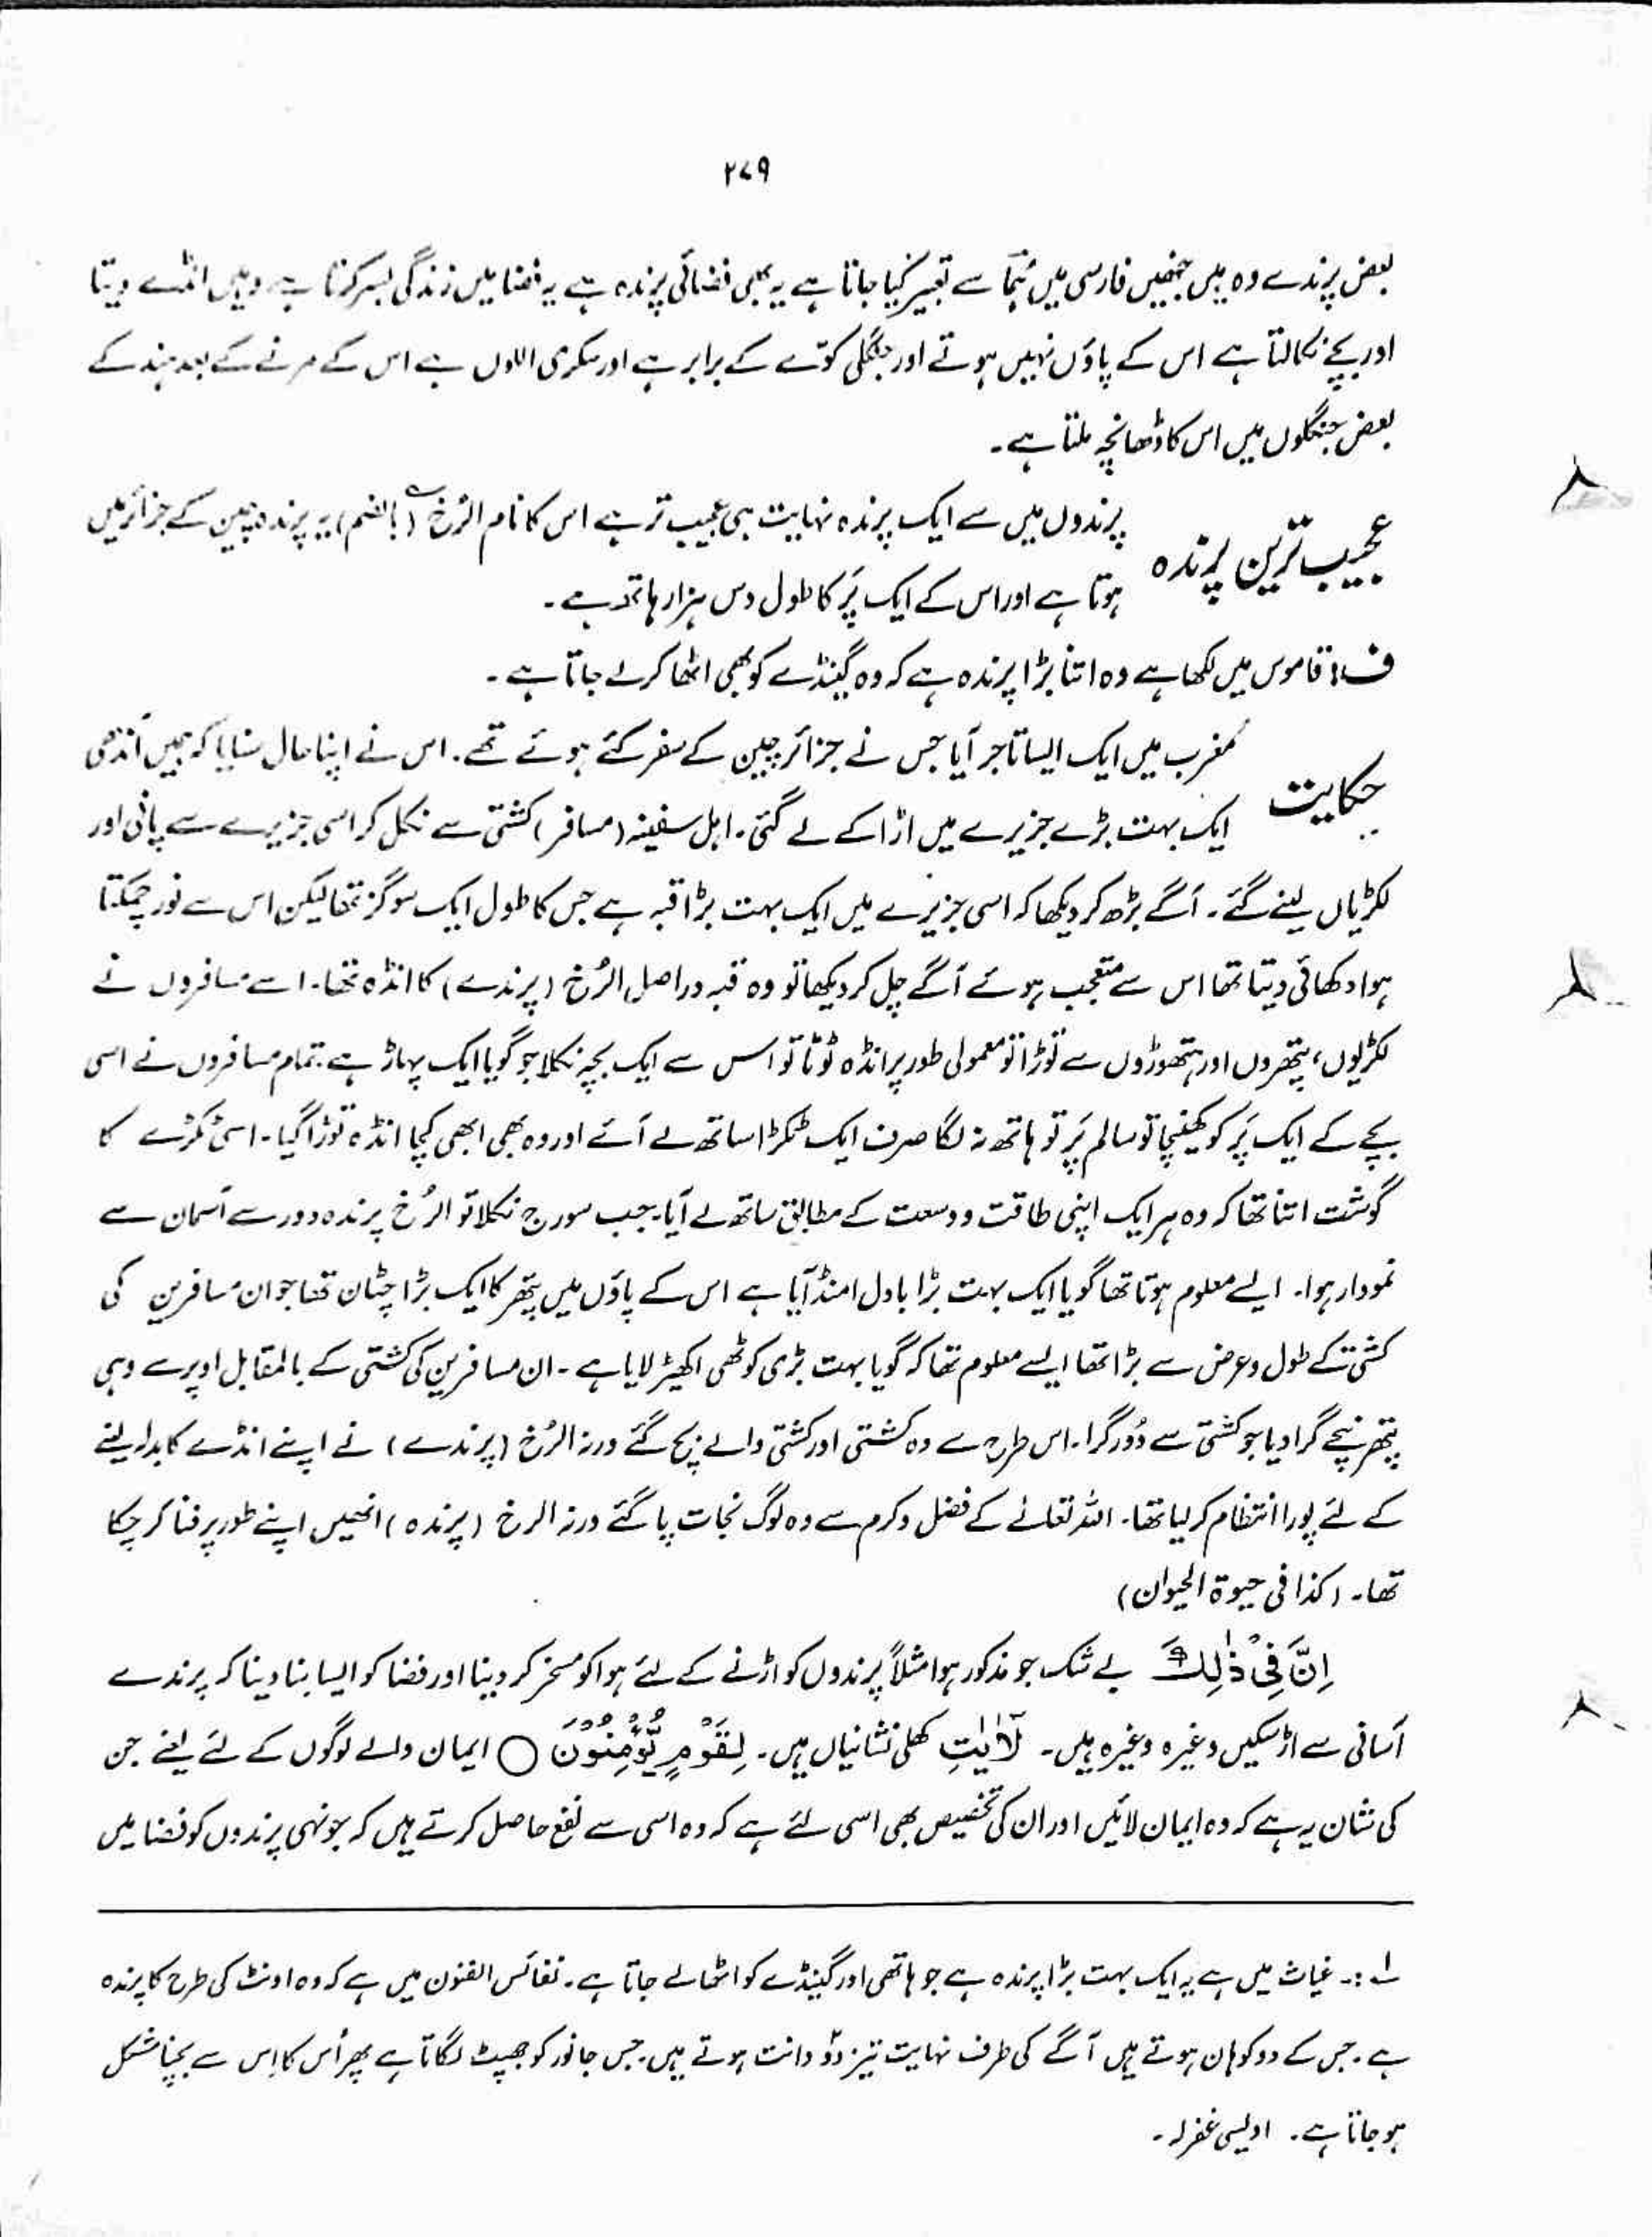 ۲۷۹
بعض پرندے وہ ہیں جنھیں فارسی میں ہُما سے تعبیر کیا جاتا ہے یہ بھی فضائی پرندہ ہے یہ فضا میں زندگی بسر کرتا ہے وہیں انڈے دیتا
اور بچے نکالتا ہے اس کے پاؤں نہیں ہوتے اور جنگلی کوّے کے برابر ہے اور سکری اللون ہے اس کے مرنے کے بعد ہند کے
بعض جنگلوں میں اس کا ڈھانچہ ملتا ہے۔
عجیب ترین پرندہ
پرندوں میں سے ایک پرندہ نہایت ہی عجیب تر ہے اس کا نام الرُخ (بالضم) یہ پرندہ چین کے جزائر میں
ہوتا ہے اور اس کے ایک پَر کا طول دس ہزار ہاتھ ہے۔
ف: قاموس میں لکھا ہے وہ اتنا بڑا پرندہ ہے کہ وہ گینڈے کو بھی اٹھا کر لے جاتا ہے۔
حکایت
مغرب میں ایک ایسا تاجر آیا جس نے جزائر چین کے سفر کئے ہوئے تھے۔ اس نے اپنا حال سنایا کہ ہمیں آندھی
ایک بہت بڑے جزیرے میں اڑا کے لے گئی۔ اہل سفینہ (مسافر) کشتی سے نکل کر اسی جزیرے سے پانی اور
لکڑیاں لینے گئے۔ آگے بڑھ کر دیکھا کہ اسی جزیرے میں ایک بہت بڑا قبہ ہے جس کا طول ایک سو گز تھا لیکن اس سے نور چمکتا
ہوا دکھائی دیتا تھا اس سے متعجب ہوئے آگے چل کر دیکھا تو وہ قبہ دراصل الرُخ (پرندے) کا انڈہ تھا۔ اسے مسافروں نے
لکڑیوں، پتھروں اور ہتھوڑوں سے توڑا تو معمولی طور پر انڈہ ٹوٹا تو اس سے ایک بچہ نکلا جو گویا ایک پہاڑ ہے تمام مسافروں نے اسی
بچے کے ایک پَر کو کھینچا تو سالم پَر تو ہاتھ نہ لگا صرف ایک ٹکڑا ساتھ لے آئے اور وہ بھی ابھی کچا انڈہ توڑا گیا۔ اسی ٹکڑے کا
گوشت اتنا تھا کہ وہ ہر ایک اپنی طاقت و وسعت کے مطابق ساتھ لے آیا۔ جب سورج نکلا تو الرُخ پرندہ دور سے آسمان سے
نمودار ہوا۔ ایسے معلوم ہوتا تھا گویا ایک بہت بڑا بادل امنڈ آیا ہے اس کے پاؤں میں پتھر کا ایک بڑا چٹان تھا جو ان مسافرین کی
کشتی کے طول و عرض سے بڑا تھا ایسے معلوم تھا کہ گویا بہت بڑی کوٹھی اکھیڑ لایا ہے۔ ان مسافرین کی کشتی کے بالمقابل اوپر سے وہی
پتھر نیچے گرا دیا جو کشتی سے دُور گرا۔ اس طرح سے وہ کشتی اور کشتی والے بچ گئے ورنہ الرُخ (پرندے) نے اپنے انڈے کا بدلہ لینے
کے لئے پورا انتظام کر لیا تھا۔ اللہ تعالے کے فضل و کرم سے وہ لوگ نجات پا گئے ورنہ الرخ (پرندہ) انھیں اپنے طور پر فنا کر چکا
تھا۔ (کذا فی حیوۃ الحیوان)
اِنَّ فِیْ ذٰلِکَ بے شک جو مذکور ہوا مثلاً پرندوں کو اڑنے کے لئے ہوا کو مسخر کر دینا اور فضا کو ایسا بنا دینا کہ پرندے
آسانی سے اڑ سکیں وغیرہ وغیرہ ہیں۔ لَاٰیٰتٍ کھلی نشانیاں ہیں۔ لِقَوْمٍ یُّؤْمِنُوْنَ ○ ایمان والے لوگوں کے لئے یعنے جن
کی شان یہ ہے کہ وہ ایمان لائیں اور ان کی تخصیص بھی اسی لئے ہے کہ وہ اسی سے نفع حاصل کرتے ہیں کہ جونہی پرندوں کو فضا میں
۱؎ :۔ غیاث میں ہے یہ ایک بہت بڑا پرندہ ہے جو ہاتھی اور گینڈے کو اٹھا لے جاتا ہے۔ نفائس الفنون میں ہے کہ وہ اونٹ کی طرح کا پرندہ
ہے۔ جس کے دو کوہان ہوتے ہیں آگے کی طرف نہایت تیز دو دانت ہوتے ہیں۔ جس جانور کو جھپٹ لگاتا ہے پھر اُس کا اِس سے بچنا مشکل
ہو جاتا ہے۔ اویسی غفرلہ۔